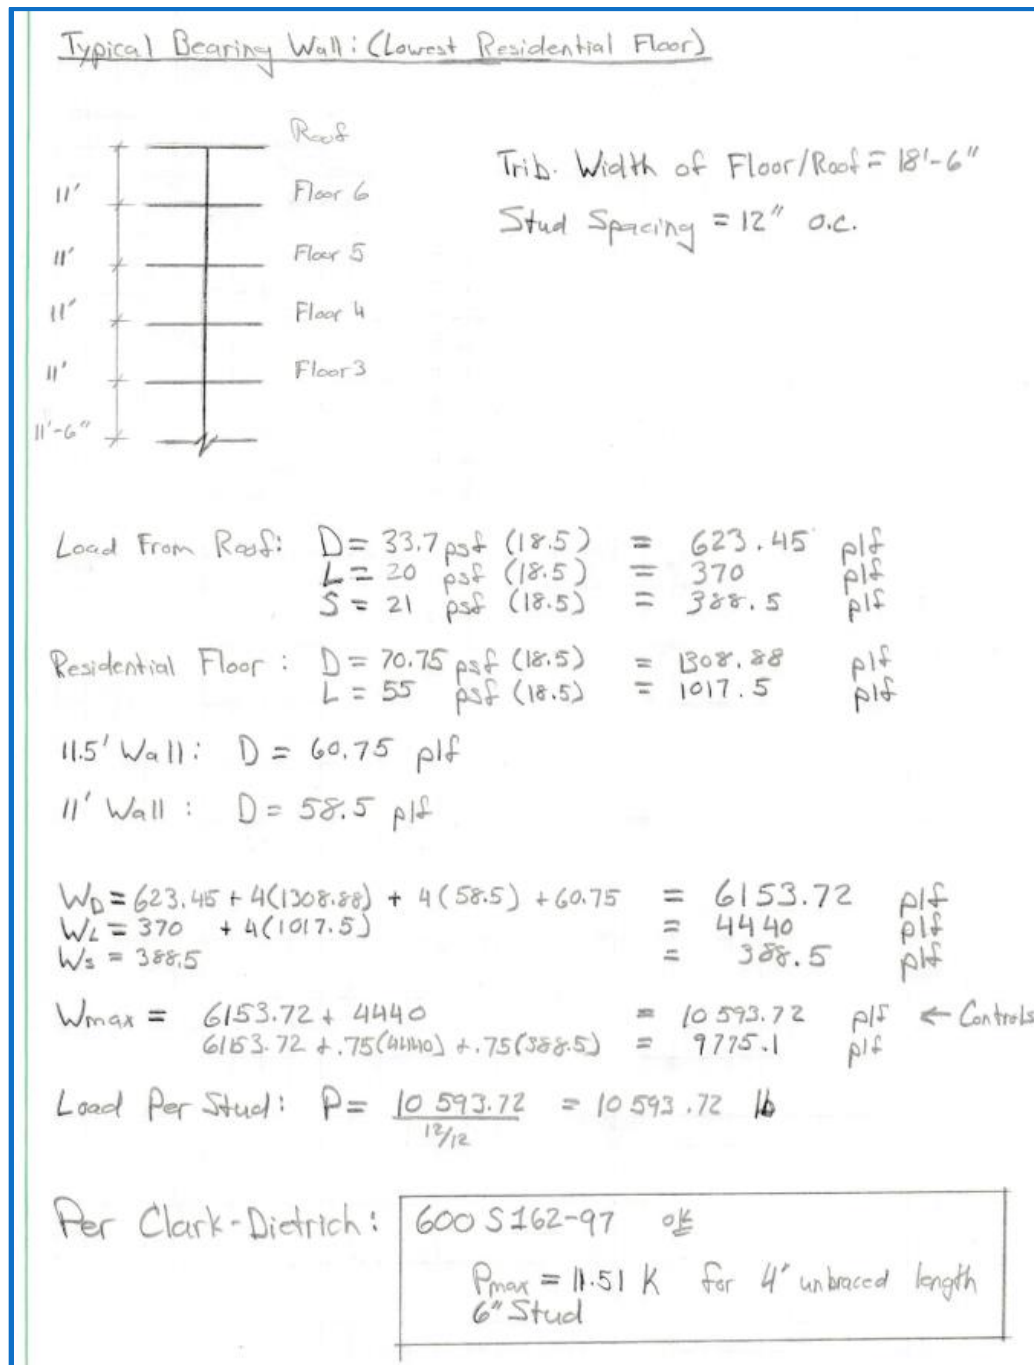 Typical Bearing Wall: (Lowest Residential Floor)
Roof
Trib. Width of Floor/Roof = 18'-6"
11'
Floor 6
Stud Spacing = 12" o.c.
11'
Floor 5
11'
Floor 4
11'
Floor 3
11'-6"
Load From Roof: D = 33.7 psf (18.5) = 623.45 plf
L = 20 psf (18.5) = 370 plf
S = 21 psf (18.5) = 388.5 plf
Residential Floor: D = 70.75 psf (18.5) = 1308.88 plf
L = 55 psf (18.5) = 1017.5 plf
11.5' Wall: D = 60.75 plf
11' Wall: D = 58.5 plf
WD = 623.45 + 4(1308.88) + 4(58.5) + 60.75 = 6153.72 plf
WL = 370 + 4(1017.5) = 4440 plf
Ws = 388.5 = 388.5 plf
Wmax = 6153.72 + 4440 = 10 593.72 plf ← Controls
6153.72 + .75(4440) + .75(388.5) = 9775.1 plf
Load Per Stud: P = 10 593.72 = 10 593.72 lb
12/12
Per Clark-Dietrich: 600 S162-97 ok
Pmax = 11.51 K for 4' unbraced length
6" Stud